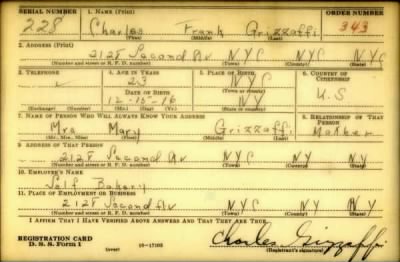 SERIAL NUMBER 1. NAME (Print) ORDER NUMBER
228 Charles Frank Grizzaffi 343
(First) (Middle) (Last)
2. ADDRESS (Print)
2128 Second Av NYC NYC NY
(Number and street or R. F. D. number) (Town) (County) (State)
3. TELEPHONE 4. AGE IN YEARS 5. PLACE OF BIRTH 6. COUNTRY OF CITIZENSHIP
23 NYC
DATE OF BIRTH (Town or county) U.S
12-15-16 NY
(Exchange) (Number) (Mo.) (Day) (Yr.) (State or country)
7. NAME OF PERSON WHO WILL ALWAYS KNOW YOUR ADDRESS 8. RELATIONSHIP OF THAT PERSON
Mrs Mary Grizzaffi Mother
(Mr., Mrs., Miss) (First) (Middle) (Last)
9. ADDRESS OF THAT PERSON
2128 Second Av NYC NYC NY
(Number and street or R. F. D. number) (Town) (County) (State)
10. EMPLOYER'S NAME
Self Bakery
11. PLACE OF EMPLOYMENT OR BUSINESS
2128 Second Av NYC NYC NY
(Number and street or R. F. D. number) (Town) (County) (State)
I AFFIRM THAT I HAVE VERIFIED ABOVE ANSWERS AND THAT THEY ARE TRUE.
REGISTRATION CARD
D. S. S. Form 1 (over) 16-17105 Charles Grizzaffi
(Registrant's signature)